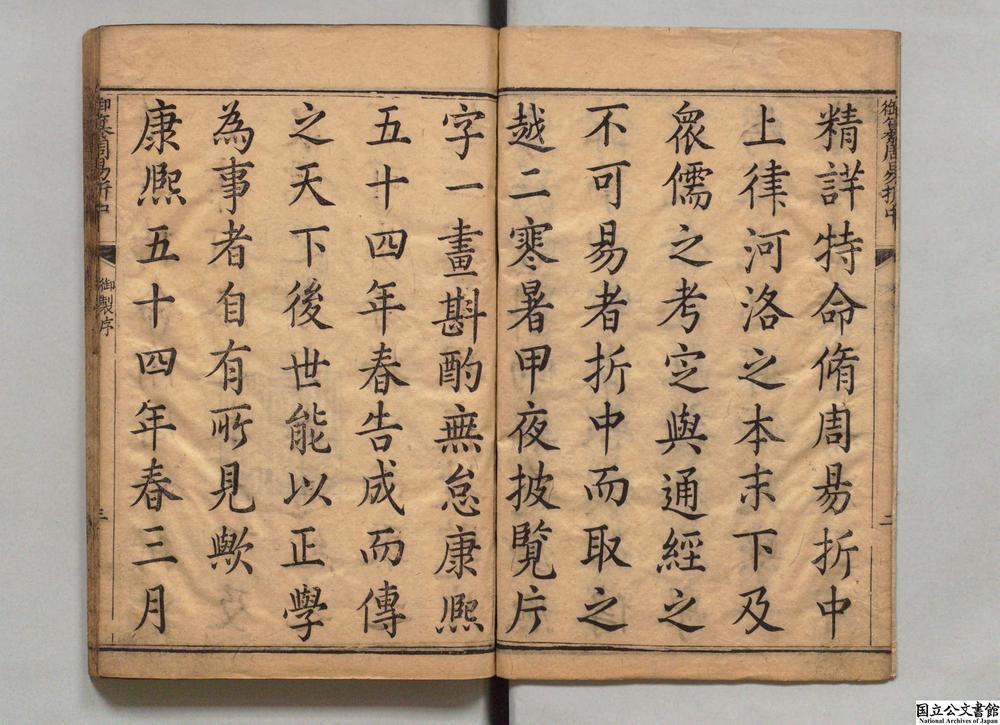 御纂周易折中
二
精詳特命脩周易折中
上律河洛之本末下及
衆儒之考定與通經之
不可易者折中而取之
越二寒暑甲夜披覽片
字一畫斟酌無怠康熙
五十四年春告成而傳
之天下後世能以正學
為事者自有所見歟
康熙五十四年春三月
御纂周易折中
御製序
三
国立公文書館
National Archives of Japan